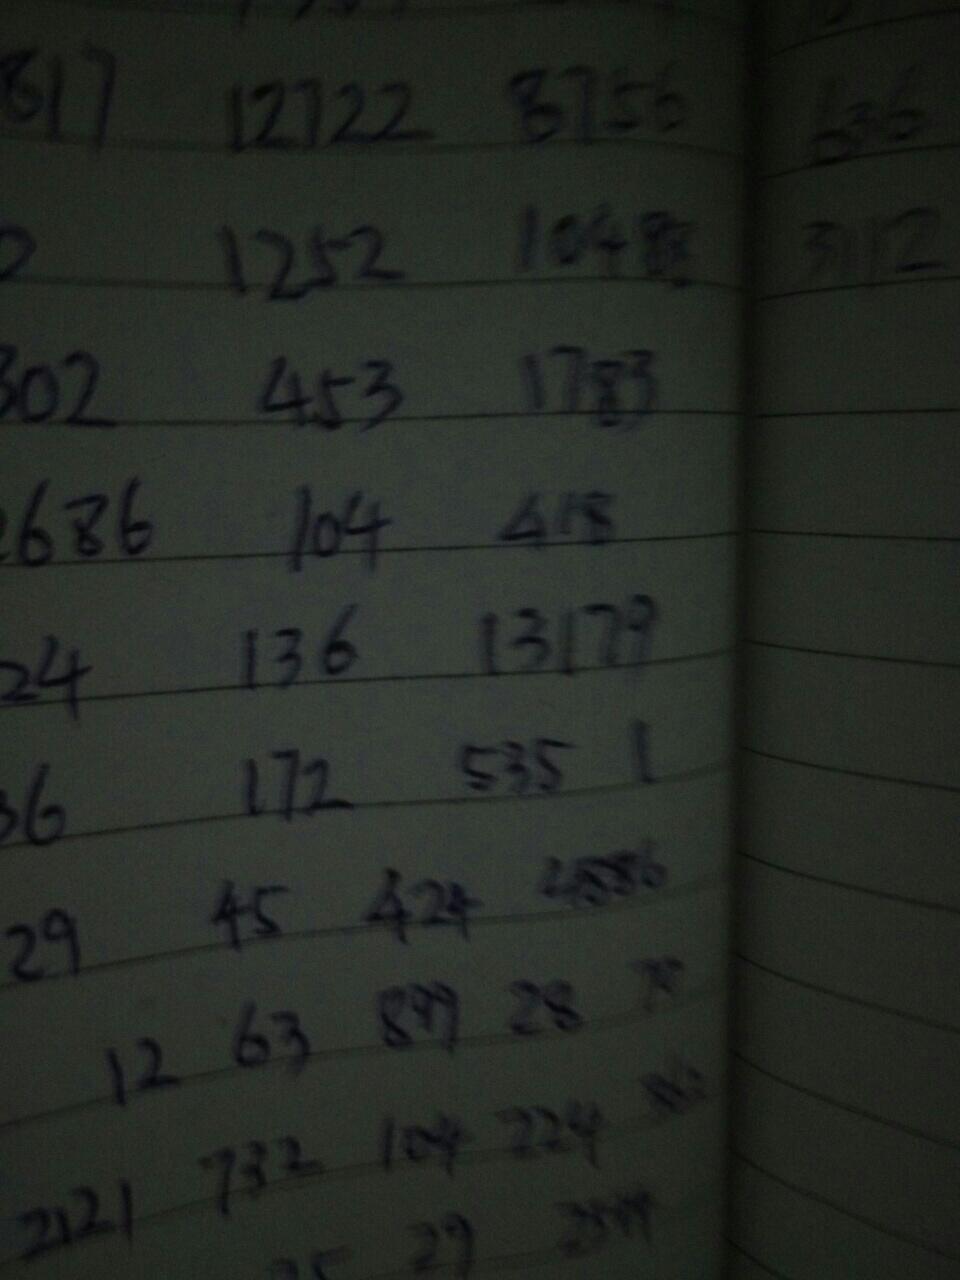 817 12722 8756 636
1252 3112
302 453 1783
686 104 418
24 136 13179
36 172 535 1
29 45 424
12 63 899 28
2121 732 104 224
29